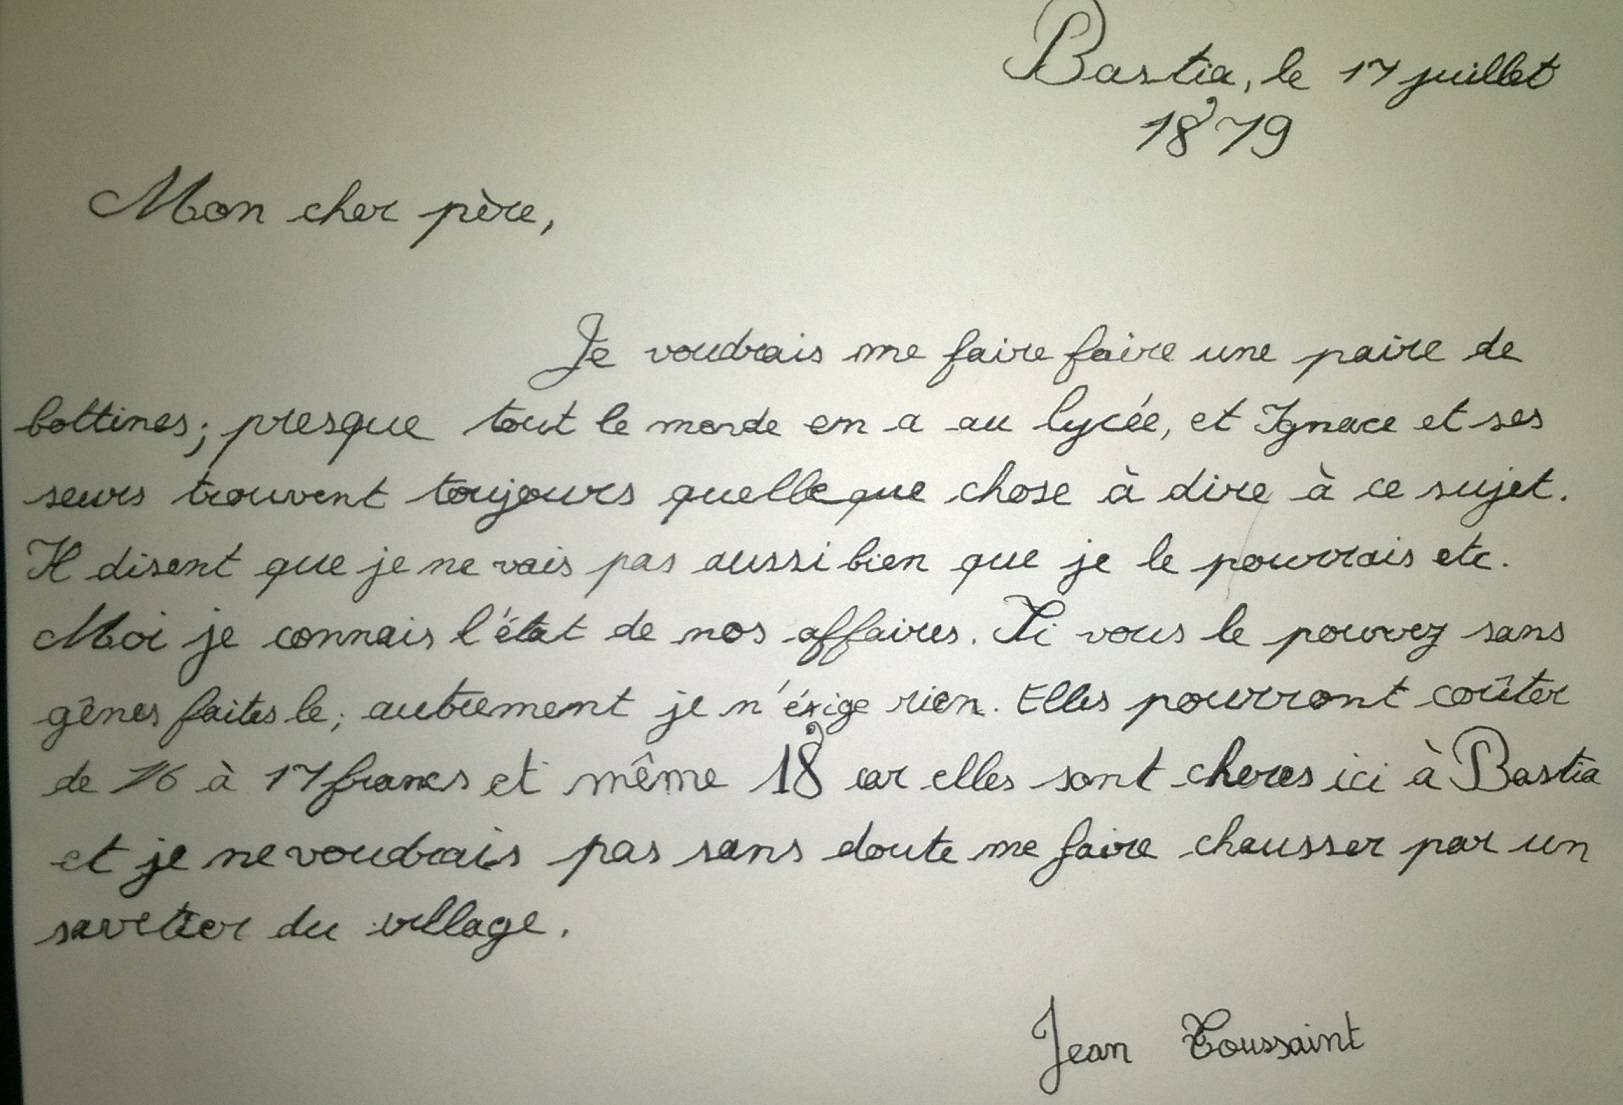 Bastia, le 17 juillet
1879
Mon cher père,
Je voudrais me faire faire une paire de
bottines; presque tout le monde en a au lycée, et Ignace et ses
seurs trouvent toujours quelleque chose à dire à ce sujet.
Il disent que je ne vais pas aussi bien que je le pourrais etc.
Moi je connais l'état de nos affaires. Si vous le pouvez sans
gênes faites le; autrement je n'éxige rien. Elles pourront coûter
de 16 à 17 francs et même 18 car elles sont cheres ici à Bastia
et je ne voudrais pas sans doute me faire chausser par un
savetier du village.
Jean Toussaint